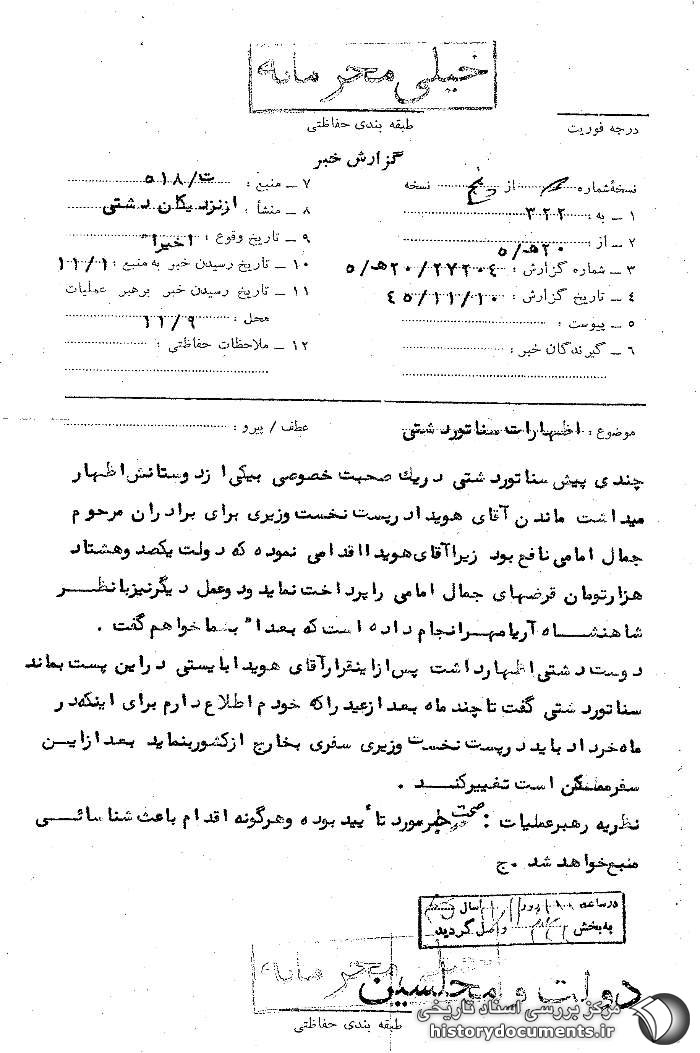 خیلی محرمانه
طبقه بندی حفاظتی
درجه فوریت
گزارش خبر
نسخهٔ شماره از پنج نسخه
۱ ـ به : ۳۲۲
۲ ـ از ۲۰هـ/۵
۳ ـ شماره گزارش : ۲۷۲۰۴/۲۰هـ/۵
۴ ـ تاریخ گزارش : ۴۵/۱۱/۱۰
۵ ـ پیوست :
۶ ـ گیرندگان خبر :
۷ ـ منبع : ت/۵۱۸
۸ ـ منشأ : ازنزدیکان دشتی
۹ ـ تاریخ وقوع : اخیراً
۱۰ ـ تاریخ رسیدن خبر به منبع : ۱۱/۱
۱۱ ـ تاریخ رسیدن خبر برهبر عملیات
محل : ۱۱/۹
۱۲ ـ ملاحظات حفاظتی :
موضوع : اظهارات سناتوردشتی
عطف / پیرو :
چندی پیش سناتوردشتی دریك صحبت خصوصی بیکی ازدوستانش اظهار
میداشت ماندن آقای هویدادرپست نخست وزیری برای برادران مرحوم
جمال امامی نافع بود زیراآقای هویدااقدامی نموده که دولت یکصدوهشتاد
هزارتومان قرضهای جمال امامی راپرداخت نماید ودوعمل دیگرنیزبانظر
شاهنشاه آریامهرانجام داده است که بعداً بشما خواهم گفت .
دوست دشتی اظهارداشت پس ازاینقرارآقای هویدابایستی دراین پست بماند
سناتوردشتی گفت تاچند ماه بعدازعید راکه خودم اطلاع دارم برای اینکه در
ماه خرداد باید درپست نخست وزیری سفری بخارج ازکشوربنماید بعدازاین
سفرممکن است تغییرکند .
نظریه رهبرعملیات : صحت خبرمورد تأیید بوده وهرگونه اقدام باعث شناسائی
منبع خواهد شد .ج
درساعه روز سال
به بخش ۳۲۲ واصل گردید
خیلی محرمانه
دولت و مجلسین
طبقه بندی حفاظتی
مرکز بررسی اسناد تاریخی
historydocuments.ir